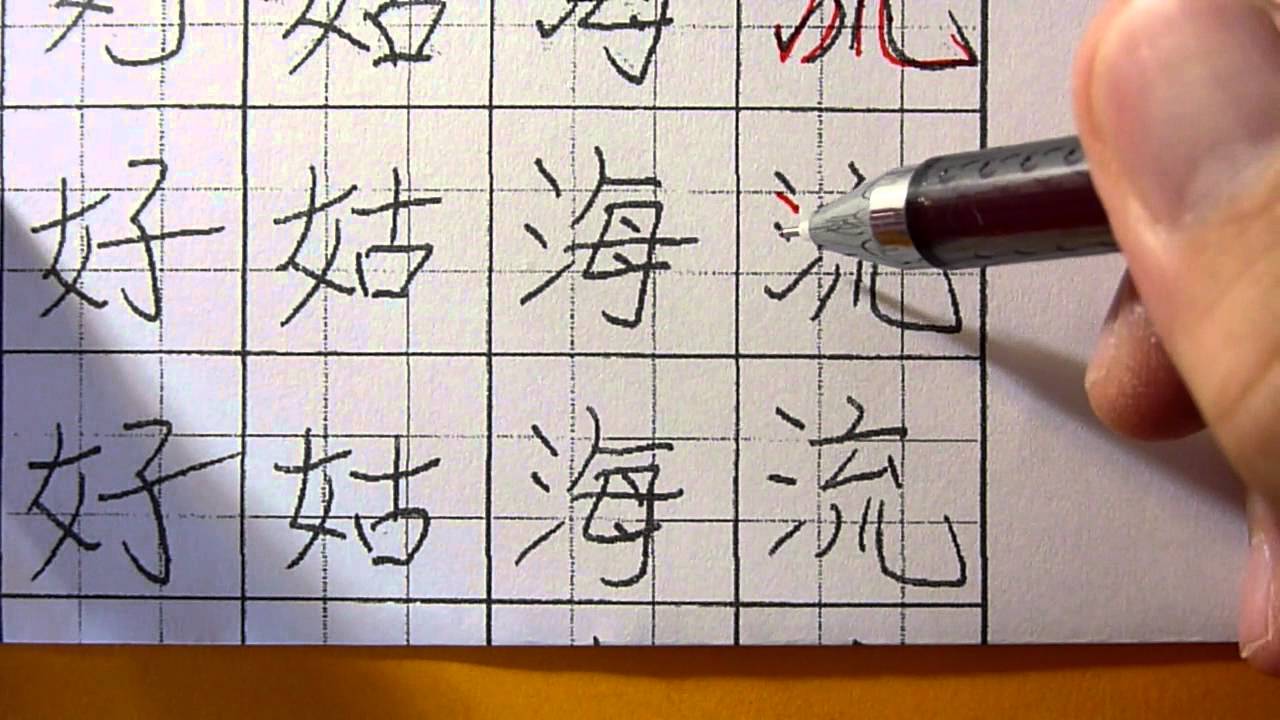 好 姑 海 流
好 姑 海 流
好 姑 海 流